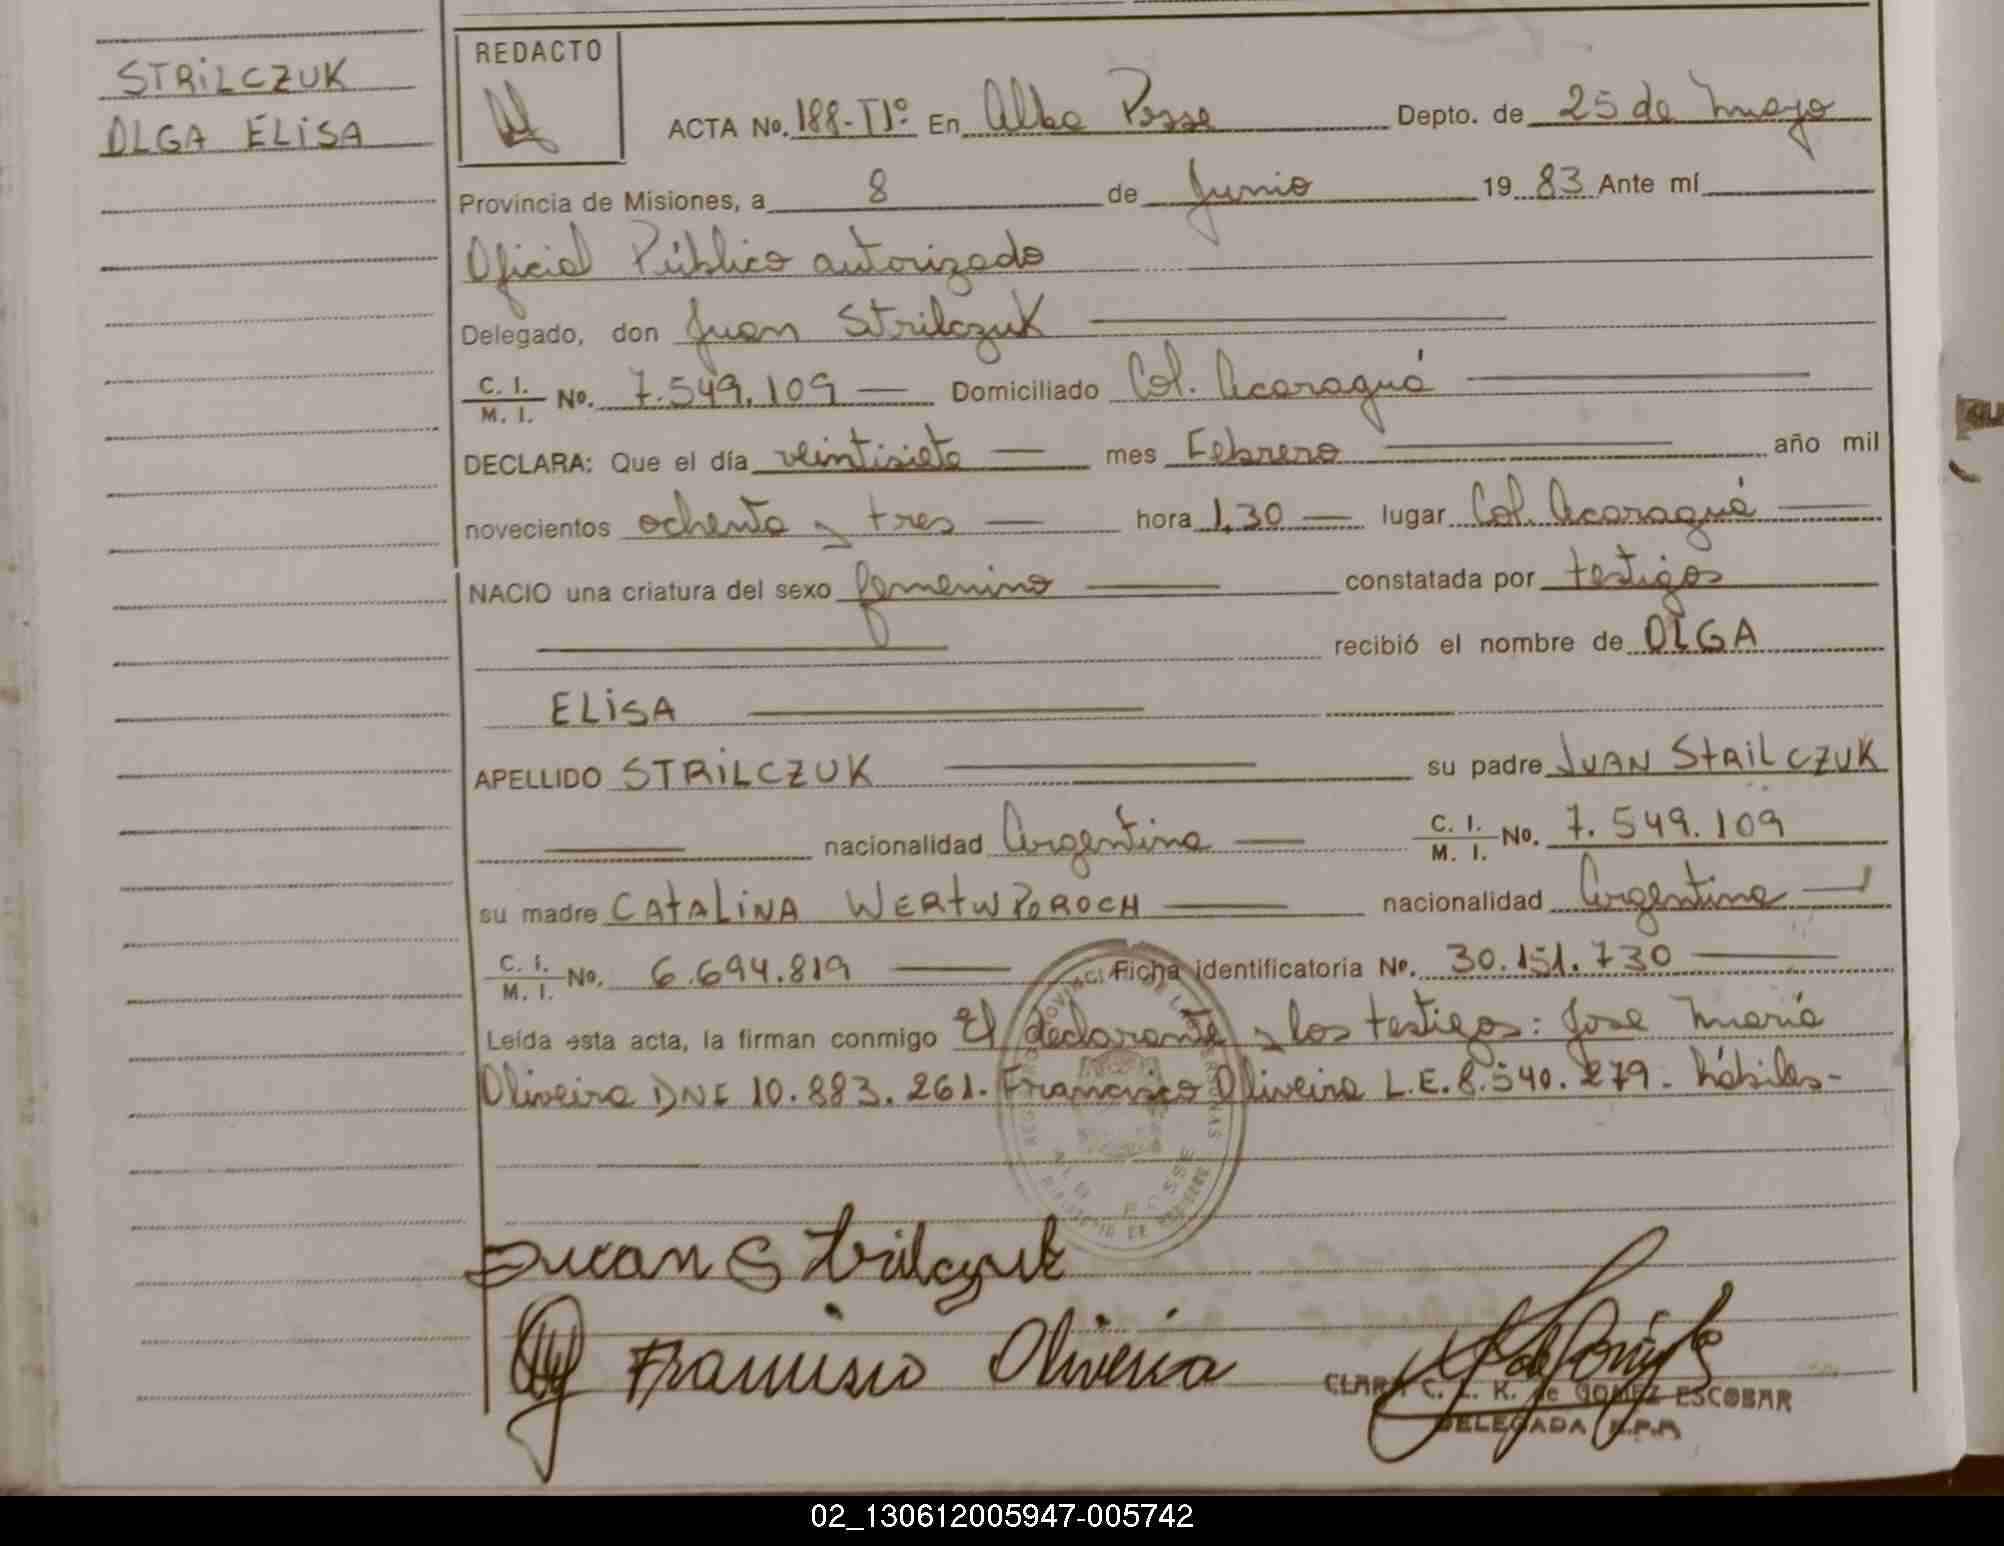 STRILCZUK
OLGA ELISA
REDACTO
ACTA No. 188-TIº En Alba Posse Depto. de 25 de Mayo
Provincia de Misiones, a 8 de Junio 1983 Ante mí
Oficial Público autorizado
Delegado, don Juan Strilczuk
C. I. / M. I. No. 7.549.109 — Domiciliado Col. Acaraguá
DECLARA: Que el día veintisiete — mes Febrero año mil
novecientos ochenta y tres — hora 1,30 — lugar Col. Acaraguá
NACIO una criatura del sexo femenino constatada por testigos
recibió el nombre de OLGA
ELISA
APELLIDO STRILCZUK su padre JUAN STRILCZUK
nacionalidad Argentina — C. I. / M. I. No. 7.549.109
su madre CATALINA WERTWPOROCH nacionalidad Argentina
C. I. / M. I. No. 6.694.819 Ficha identificatoria No. 30.151.730
Leída esta acta, la firman conmigo El declarante y los testigos: Jose Maria
Oliveira DNI 10.883.261. Francisco Oliveira L.E. 8.540.279. hábiles-
ALBA POSSE
Juan Strilczuk
Francisco Oliveira
CLARA C. L. K. de GOMEZ ESCOBAR
DELEGADA R.P.P.
02_130612005947-005742